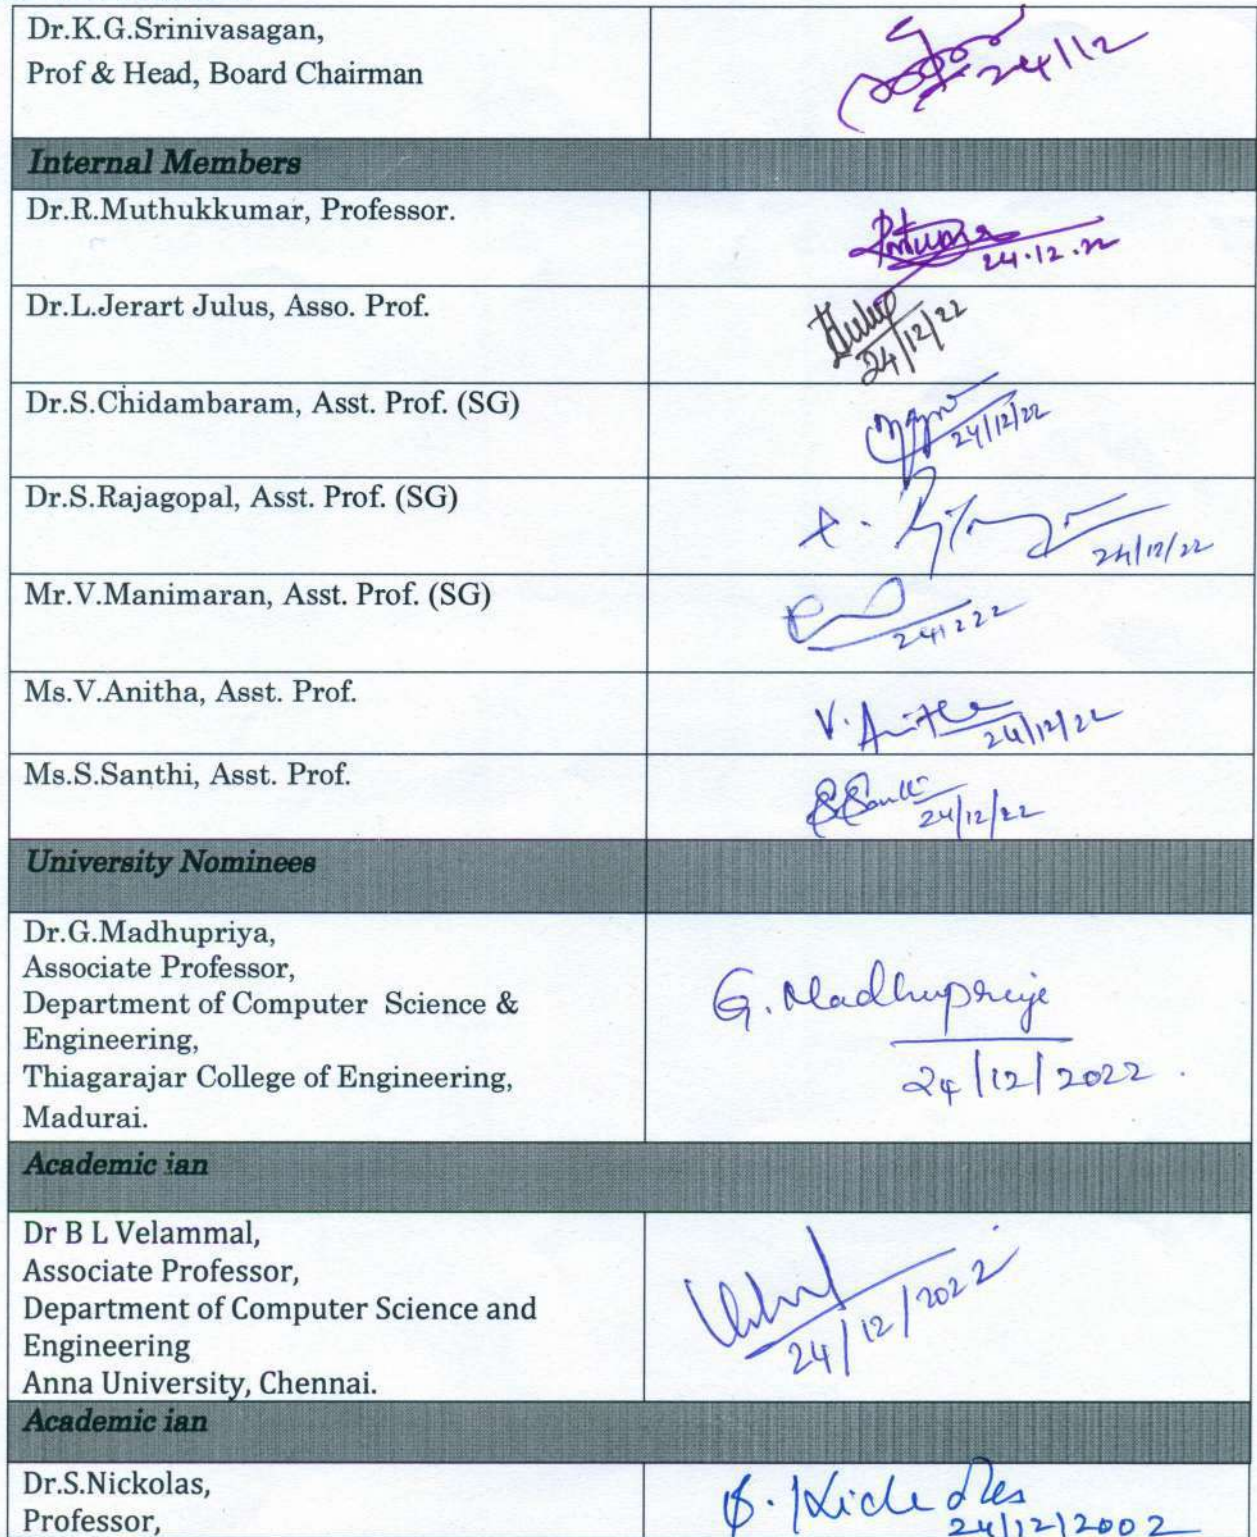 Dr.K.G.Srinivasagan,
Prof & Head, Board Chairman
24/12
Internal Members
Dr.R.Muthukkumar, Professor.
24.12.22
Dr.L.Jerart Julus, Asso. Prof.
24/12/22
Dr.S.Chidambaram, Asst. Prof. (SG)
24/12/22
Dr.S.Rajagopal, Asst. Prof. (SG)
24/12/22
Mr.V.Manimaran, Asst. Prof. (SG)
241222
Ms.V.Anitha, Asst. Prof.
V. Anitha
24/12/22
Ms.S.Santhi, Asst. Prof.
24/12/22
University Nominees
Dr.G.Madhupriya,
Associate Professor,
Department of Computer Science &
Engineering,
Thiagarajar College of Engineering,
Madurai.
G. Madhupriya
24/12/2022.
Academic ian
Dr B L Velammal,
Associate Professor,
Department of Computer Science and
Engineering
Anna University, Chennai.
24/12/2022
Academic ian
Dr.S.Nickolas,
Professor,
24/12/2002